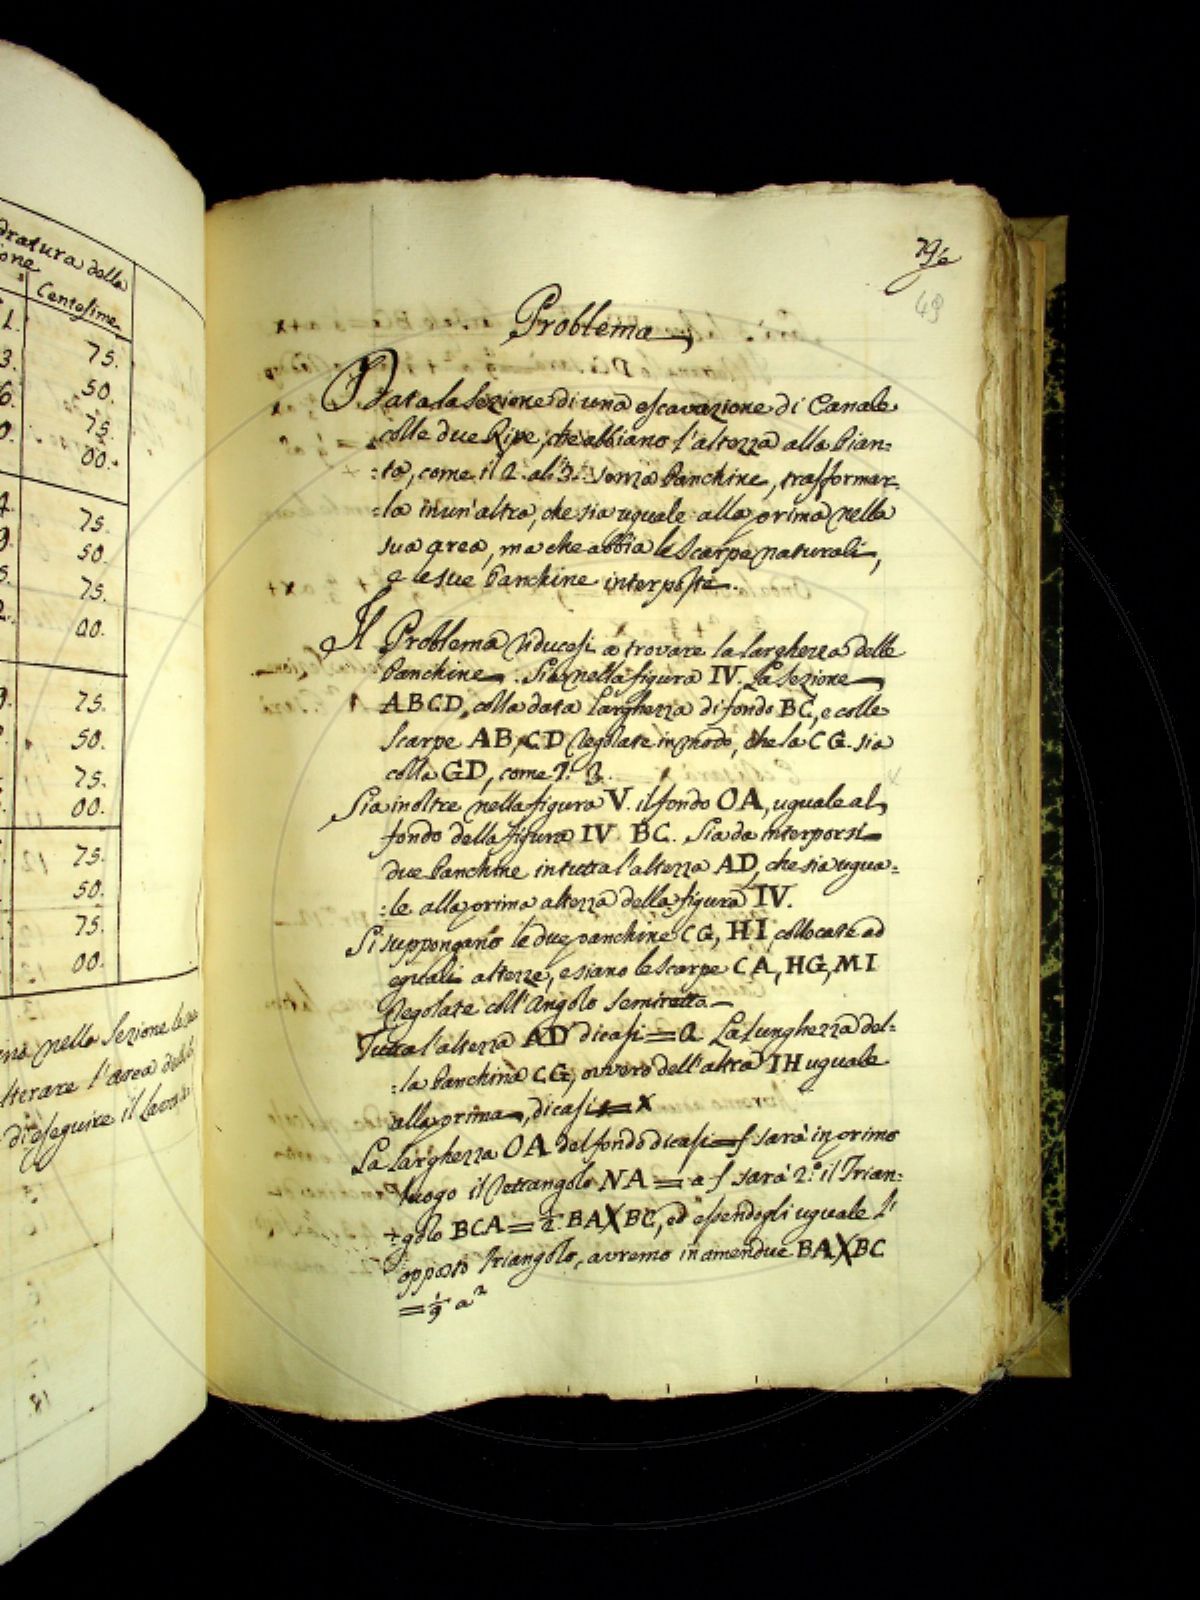 dratura della
ione
Centesime
1.
75.
3.
50.
6.
75.
0.
00.
4.
75.
9.
50.
5.
75.
2.
00.
9.
75.
50.
75.
00.
75.
50.
75.
00.
nella Sezione le
lterare l'area della
di eseguire il Lavoro
79
49
Problema
Data la Sezione di una escavazione di Canale
colle due Ripe, che abbiano l'altezza alla Pian:
:ta, come il 2. al 3. senza Panchine, trasformar:
:la in un'altra, che sia uguale alla prima nella
sua area, ma che abbia le Scarpe naturali,
e le sue Panchine interposte.
Il Problema riducesi a trovare la larghezza delle
Panchine. Sia nella figura IV. La Sezione
ABCD, colla data larghezza di fondo BC, e colle
Scarpe AB, CD regolate in modo, che la CG. sia
colla GD, come 2. 3.
Sia inoltre nella figura V. il fondo OA, uguale al
fondo della figura IV BC. Sia da interporsi
due Panchine in tutta l'altezza AD, che sia ugua:
:le alla prima altezza della figura IV.
Si suppongano le due panchine CG, HI collocate ad
eguali altezze, e siano le Scarpe CA, HG, MI
Regolate coll'Angolo Semiretto
Tutta l'altezza AD dicasi = a La lunghezza del:
:la Panchina CG, ovvero dell'altra IH uguale
alla prima, dicasi = x
La larghezza OA del fondo dicasi = f sarà in primo
luogo il Rettangolo NA = a f sarà 2.º il Trian:
:golo BCA = ½ BAXBC, ed essendogli uguale l'
opposto Triangolo, avremo in amendue BAXBC
= 1/9 a²